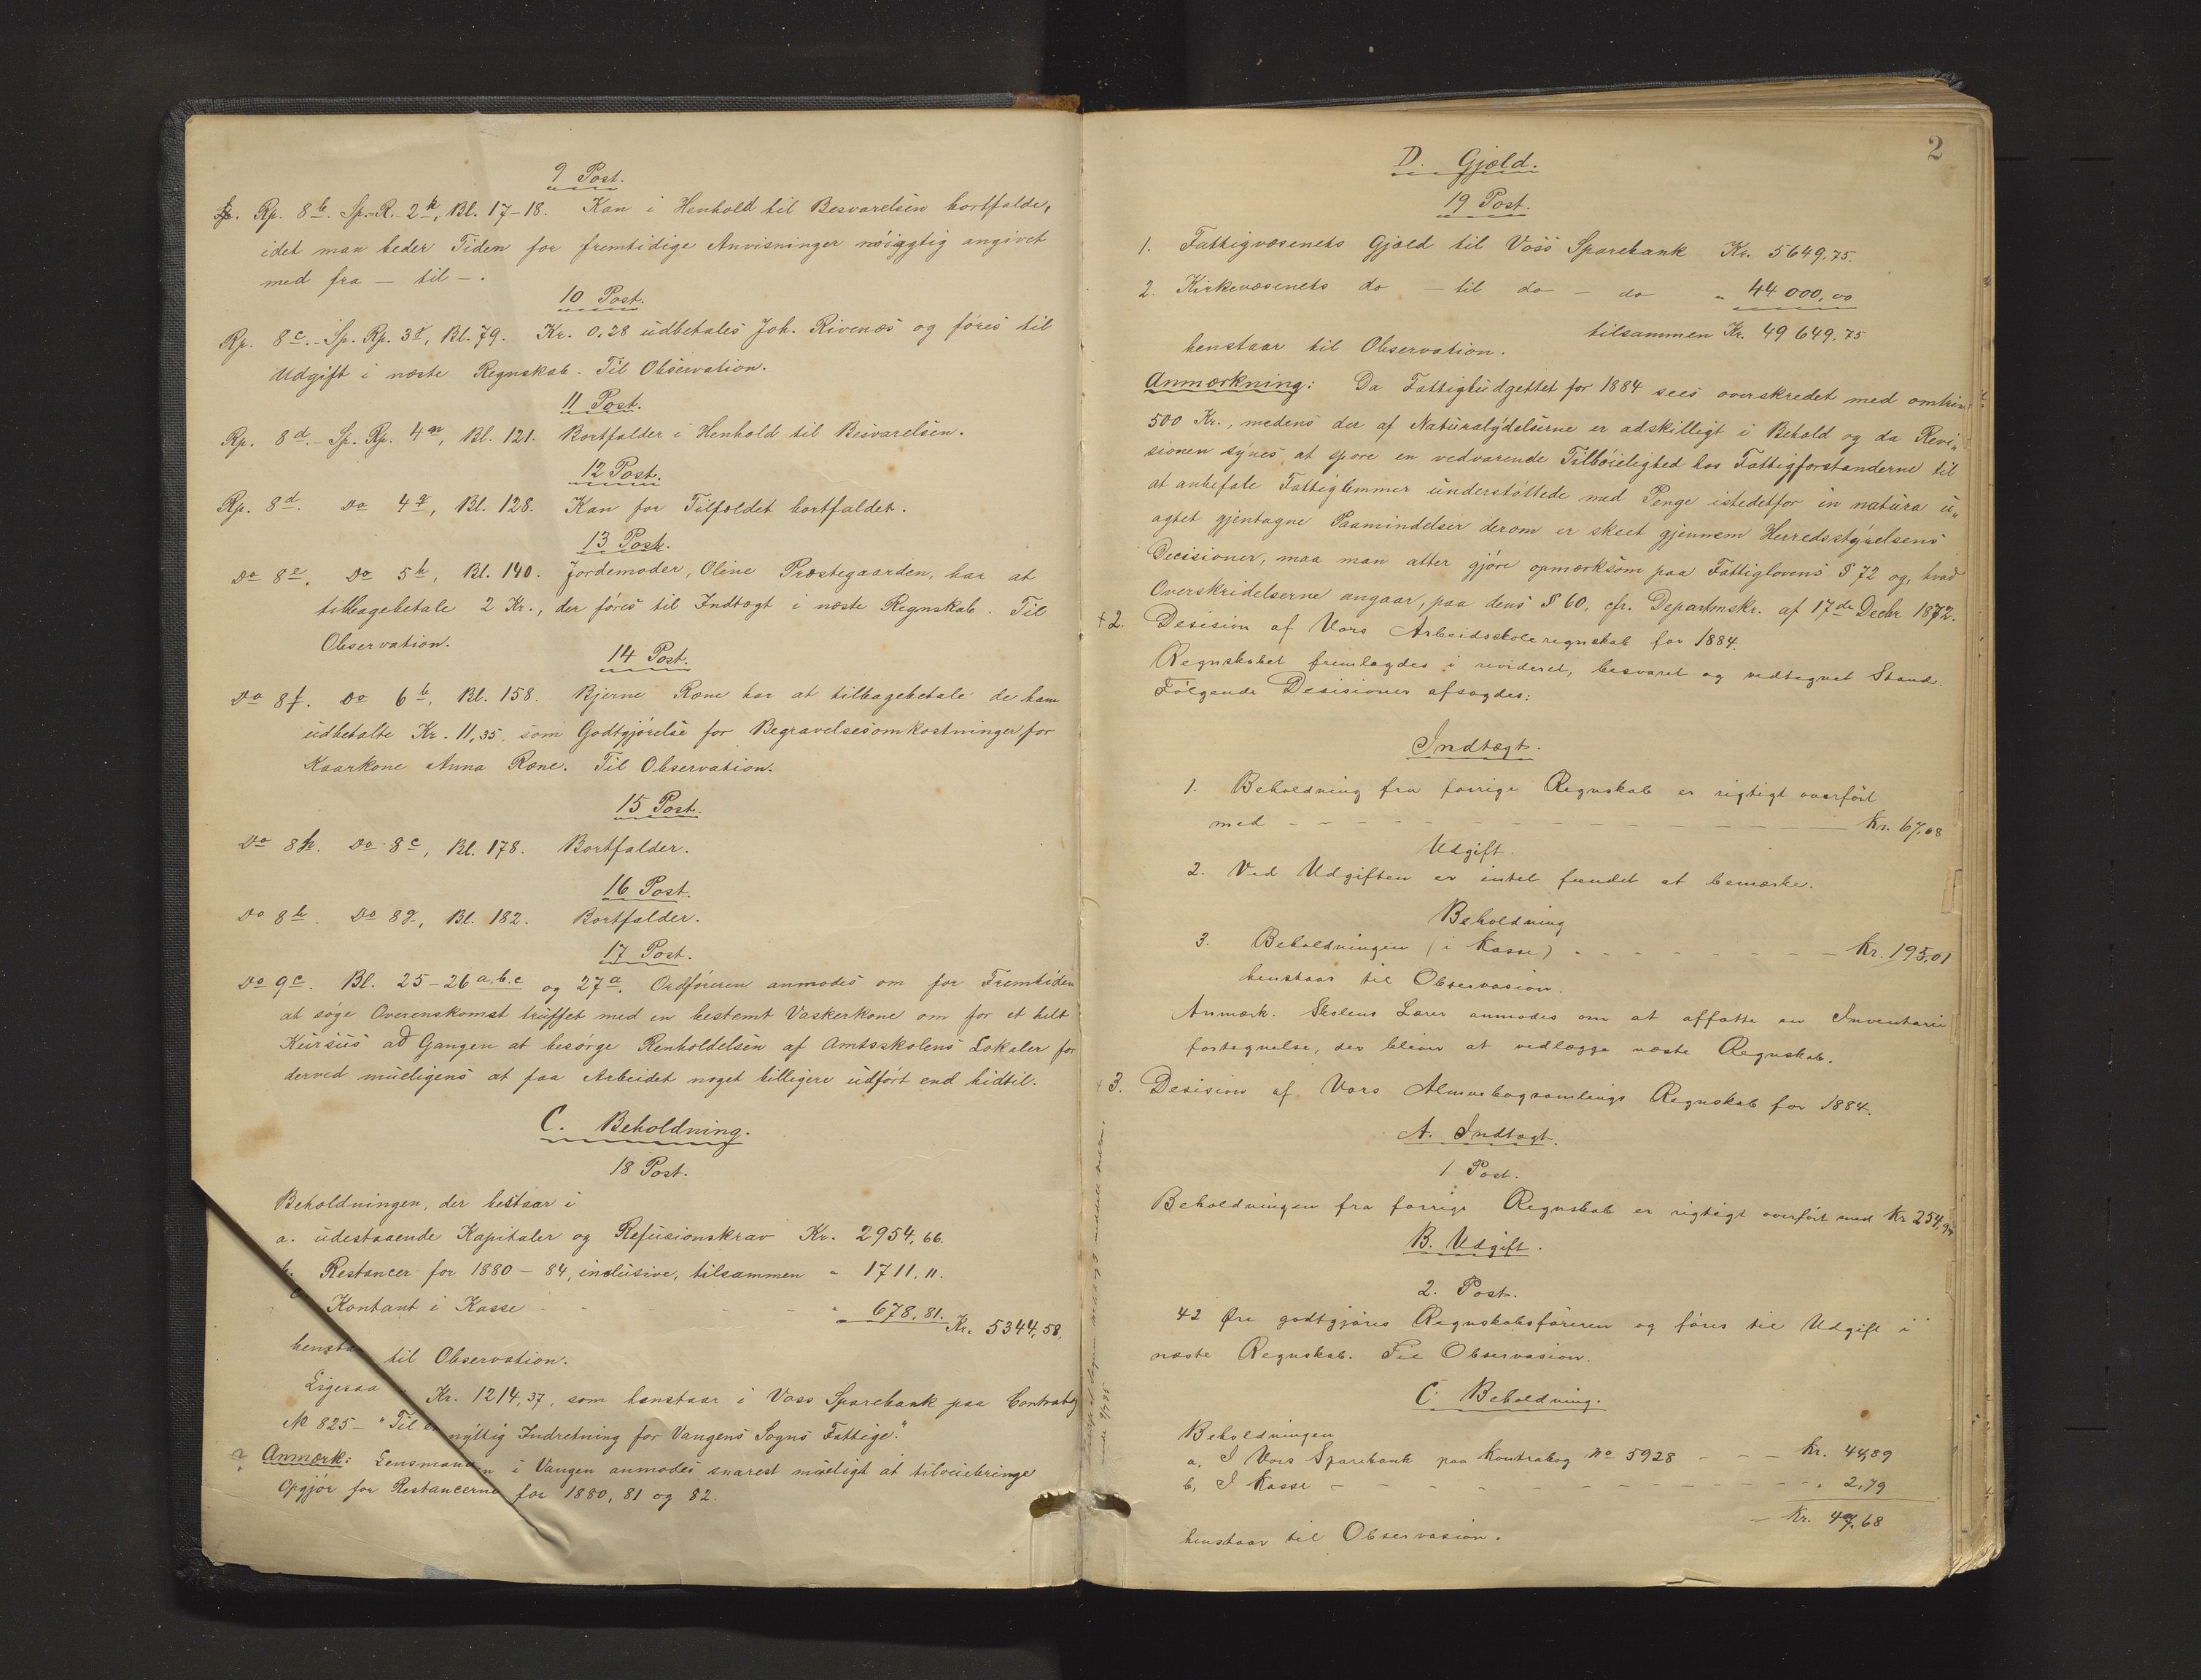 9 Post.
Rp. 8b. Sp.-R. 2k, Bl. 17-18. Kan i Henhold til Besvarelsen bortfalde,
idet man beder Tiden for fremtidige Anvisninger nöiagtig angivet
med fra — til —.
10 Post.
Rp. 8c. Sp. Rp. 3r, Bl. 79. Kr. 0.28 udbetales Joh. Rivenæs og föres til
Udgift i næste Regnskab. Til Observation.
11 Post.
Rp. 8d. Sp. Rp. 4n, Bl. 121. Bortfalder i Henhold til Besvarelsen.
12 Post.
Rp. 8d. Do 4q, Bl. 128. Kan for Tilfældet bortfaldet.
13 Post.
Do 8e. Do 5h, Bl. 140. Jordemoder, Oline Præstegaarden, har at
tilbagebetale 2 Kr., der föres til Indtægt i næste Regnskab. Til
Observation.
14 Post.
Do 8f. Do 6b, Bl. 158. Bjerne Røne har at tilbagebetale de ham
udbetalte Kr. 11,35 som Godtgjörelse for Begravelsesomkostninger for
Kaarkone Anna Røne. Til Observation.
15 Post.
Do 8h. Do 8c, Bl. 178. Bortfalder.
16 Post.
Do 8h. Do 8g, Bl. 182. Bortfalder.
17 Post.
Do 9c. Bl. 25-26 a,b,c og 27a. Ordföreren anmodes om for Fremtiden
at söge Overenskomst truffet med en bestemt Vaskerkone om for et helt
Kursus ad Gangen at besörge Renholdelsen af Amtsskolens Lokaler for
derved mueligens at faa Arbeidet noget billigere udfört end hidtil.
C. Beholdning.
18 Post.
Beholdningen, der bestaar i
a. udestaaende Kapitaler og Refusionskrav Kr. 2954,66.
b. Restancer for 1880-84, inclusive, tilsammen " 1711,11.
c. Kontant i Kasse - - - - " 678,81. Kr. 5344,58,
henstaar til Observation.
Ligesaa Kr. 1214,37, som henstaar i Voss Sparebank paa Contrabog
No 825 - "Til en nyttig Indretning for Vangens Sogns Fattige".
Anmærk: Lensmanden i Vangen anmodes snarest mueligt at tilveiebringe
Opgjör for Restancerne for 1880, 81 og 82.
2
D. Gjæld.
19 Post.
1. Fattigvæsenets Gjæld til Voss Sparebank Kr. 5649,75.
2. Kirkevæsenets do - til do - do " 44 000,00
tilsammen Kr. 49 649,75
henstaar til Observation.
Anmærkning: Da Fattigbudgettet for 1884 sees overskredet med omtrin
500 Kr., medens der af Naturalydelserne er adskilligt i Behold og da Revi„
sionen synes at spore en vedvarende Tilböielighed hos Fattigforstanderne til
at anbefale Fattiglemmer understöttede med Penge istedetfor in natura u„
agtet gjentagne Paamindelser derom er skeet gjennem Herredsstyrelsens
Decisioner, maa man atter gjöre opmærksom paa Fattiglovens § 72 og, hvad
Overskridelserne angaar, paa dens § 60, cfr. Departmskr. af 17de Decbr 1872.
+ 2. Desision af Vors Arbeidsskoleregnskab for 1884.
Regnskabet fremlagdes i revideret, besvaret og vedtegnet Stand.
Fölgende Desisioner afsagdes:
Indtægt.
1. Beholdning fra forrige Regnskab er rigtigt overfört
med - - - - Kr. 67,08
Udgift.
2. Ved Udgiften er intet fundet at bemærke.
Beholdning
3. Beholdningen (i Kasse) - - - - Kr. 195,01
henstaar til Observasion.
Anmærk. Skolens Lærer anmodes om at affatte en Inventarie
fortegnelse, der bliver at vedlægge næste Regnskab.
+ 3. Desision af Vors Almuebogsamlings Regnskab for 1884.
A. Indtægt.
1 Post.
Beholdningen fra forrige Regnskab er rigtigt overfört med Kr 254,94
B. Udgift.
2. Post.
42 Øre godtgjöres Regnskabsföreren og föres til Udgift i
næste Regnskab. Til Observasion.
C. Beholdning.
Beholdningen
a. I Vors Sparebank paa Kontrabog No 5928 - - - Kr. 44,89
b. I Kasse - - - - " 2,79
- Kr. 47,68
henstaar til Observasion.